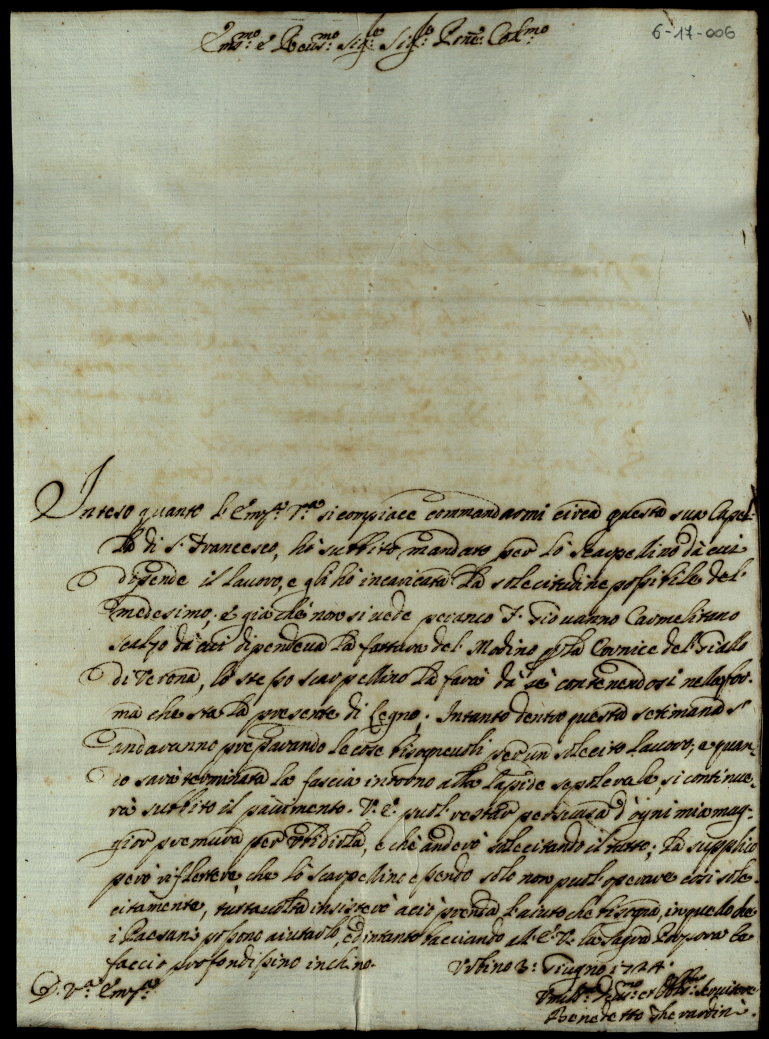 6-17-006
Em:mo e Reu:mo Sig:re Sig:re Prñe: Col:mo
Inteso quanto l'Emz:a V:a si compiace commandarmi circa questa sua Capel-
la di S. Francesco, hó subbito mandato per lo scarpellino dà cui
dipende il lavoro, e gli hó incaricata la solecitudine possibile del
medesimo; e giache non si vede peranco F. Giovanno Carmelitano
scalzo da cui dipendeva la fattura del Modino p la Cornice del Giallo
di Verona, lo stesso scarpellino la farà dà sè contenendosi nella for-
ma che stà la presente di legno. Intanto dentro questa settimana s'
andaranno preparando le cose bisognevoli per un solecito lavoro, e quan-
do sarà terminata la fascia intorno alla lapide sepolcrale, si continue-
rà subbito il pavimento. V. E. puol restar persuasa d'ogni mia mag-
gior premura per ubidirla, e che anderò solecitando il tutto; la supplico
però riflettere che lo scarpellino essendo solo non puol operare così sole-
citamente, tutta volta insisterò acciò prenda l'aiuto che bisogna, in quello che
i Paesani possono aiutarlo, ed intanto bacciando all'E. V. la Sagra Porpora le
faccio profondissimo inchino.
Urbino 3: Giugno 1724.
D. V:a Emz:a
Umil:mo Deu:mo et Obbl:mo Servitore
Benedetto Gherardini.